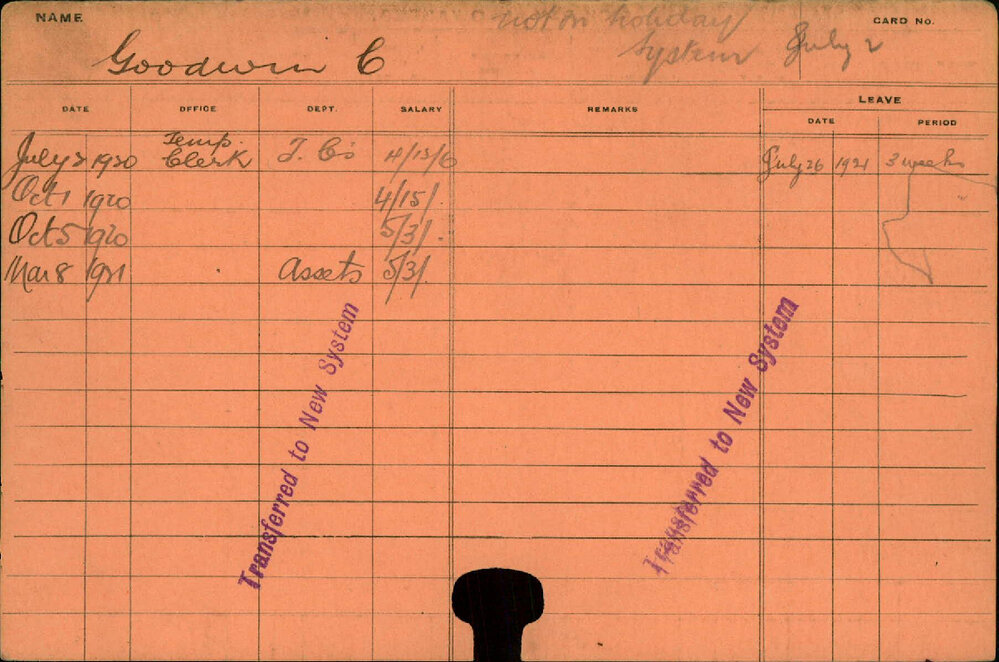 NAME
Goodwin C
not on holiday
System
July 2
CARD No.
DATE OFFICE DEPT. SALARY REMARKS LEAVE
DATE PERIOD
July 2 1920 Temp. Clerk T. Co's 4/15/0 July 26 1921 3 weeks
Oct 1 1920 4/15/.
Oct 5 1920 5/3/.
Mar 8 1921 Assets 5/3/.
Transferred to New System
Transferred to New System